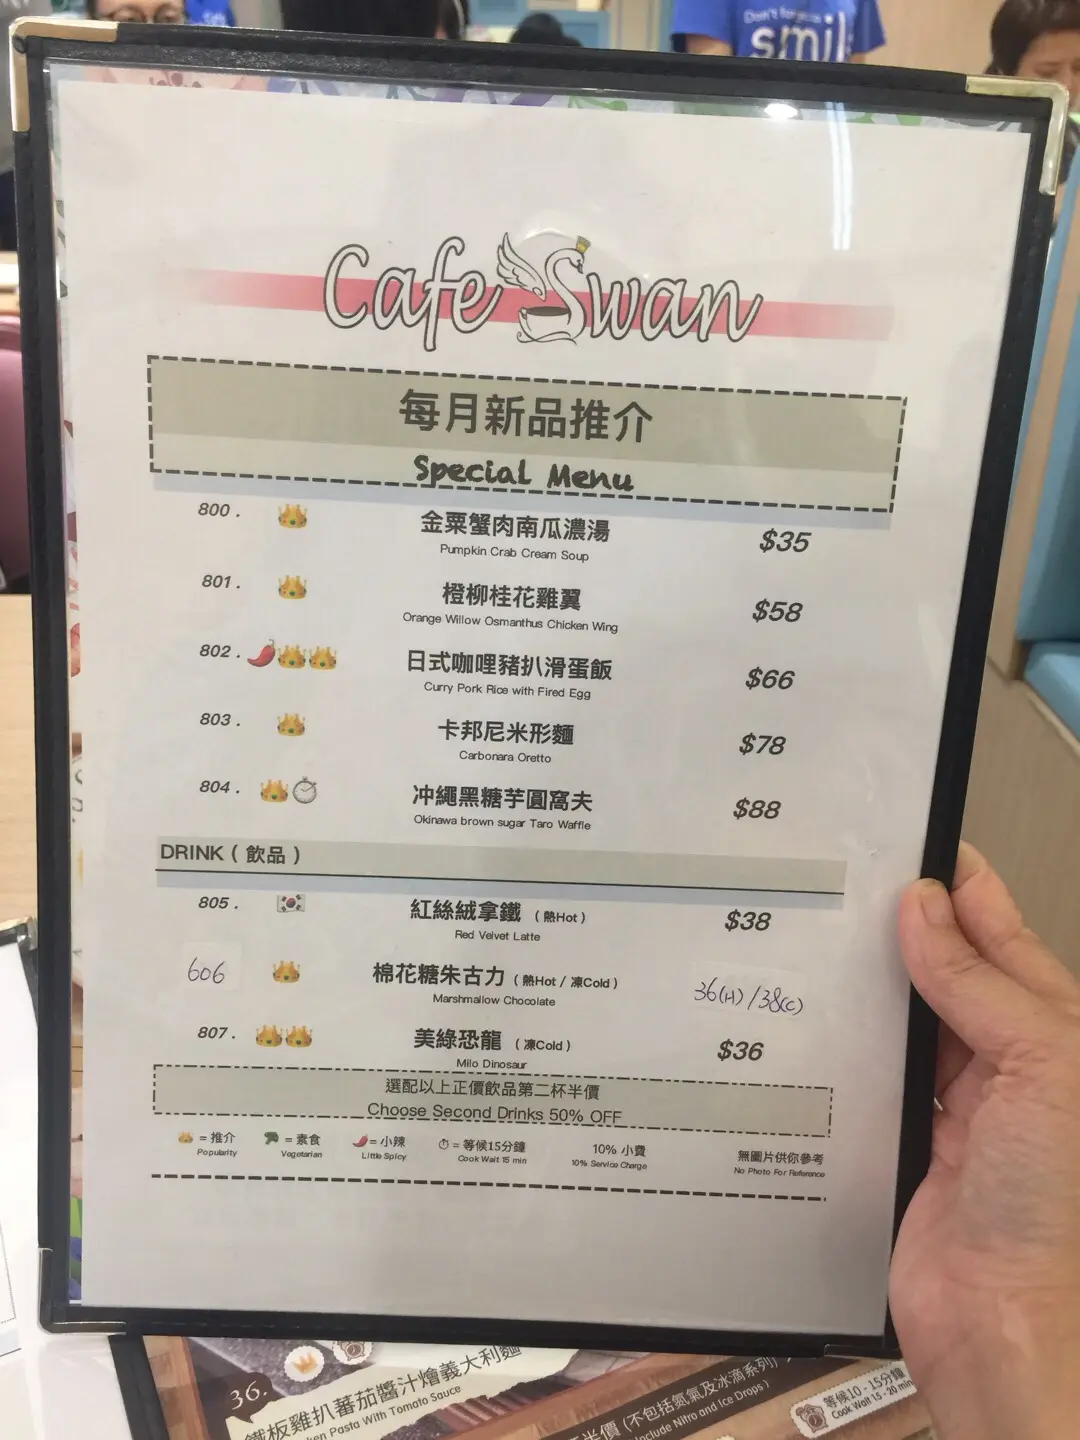 Don't forget
smil
Cafe Swan
每月新品推介
Special Menu
800. 金粟蟹肉南瓜濃湯 $35
Pumpkin Crab Cream Soup
801. 橙柳桂花雞翼 $58
Orange Willow Osmanthus Chicken Wing
802. 日式咖哩豬扒滑蛋飯 $66
Curry Pork Rice with Fired Egg
803. 卡邦尼米形麵 $78
Carbonara Oretto
804. 冲繩黑糖芋圓窩夫 $88
Okinawa brown sugar Taro Waffle
DRINK ( 飲品 )
805. 紅絲絨拿鐵 ( 熱Hot ) $38
Red Velvet Latte
606 棉花糖朱古力 ( 熱Hot / 凍Cold ) 36(H)/38(C)
Marshmallow Chocolate
807. 美綠恐龍 ( 凍Cold ) $36
Milo Dinosaur
選配以上正價飲品第二杯半價
Choose Second Drinks 50% OFF
= 推介 = 素食 = 小辣 = 等候15分鐘 10% 小費 無圖片供你參考
Popularity Vegetarian Little Spicy Cook Wait 15 min 10% Service Charge No Photo For Reference
36.
鐵板雞扒蕃茄醬汁燴義大利麵
ken Pasta With Tomato Sauce
半價 (不包括氮氣及冰滴系列)
nclude Nitro and Ice Drops )
等候10 - 15分鐘
Cook Wait 15 - 20 min